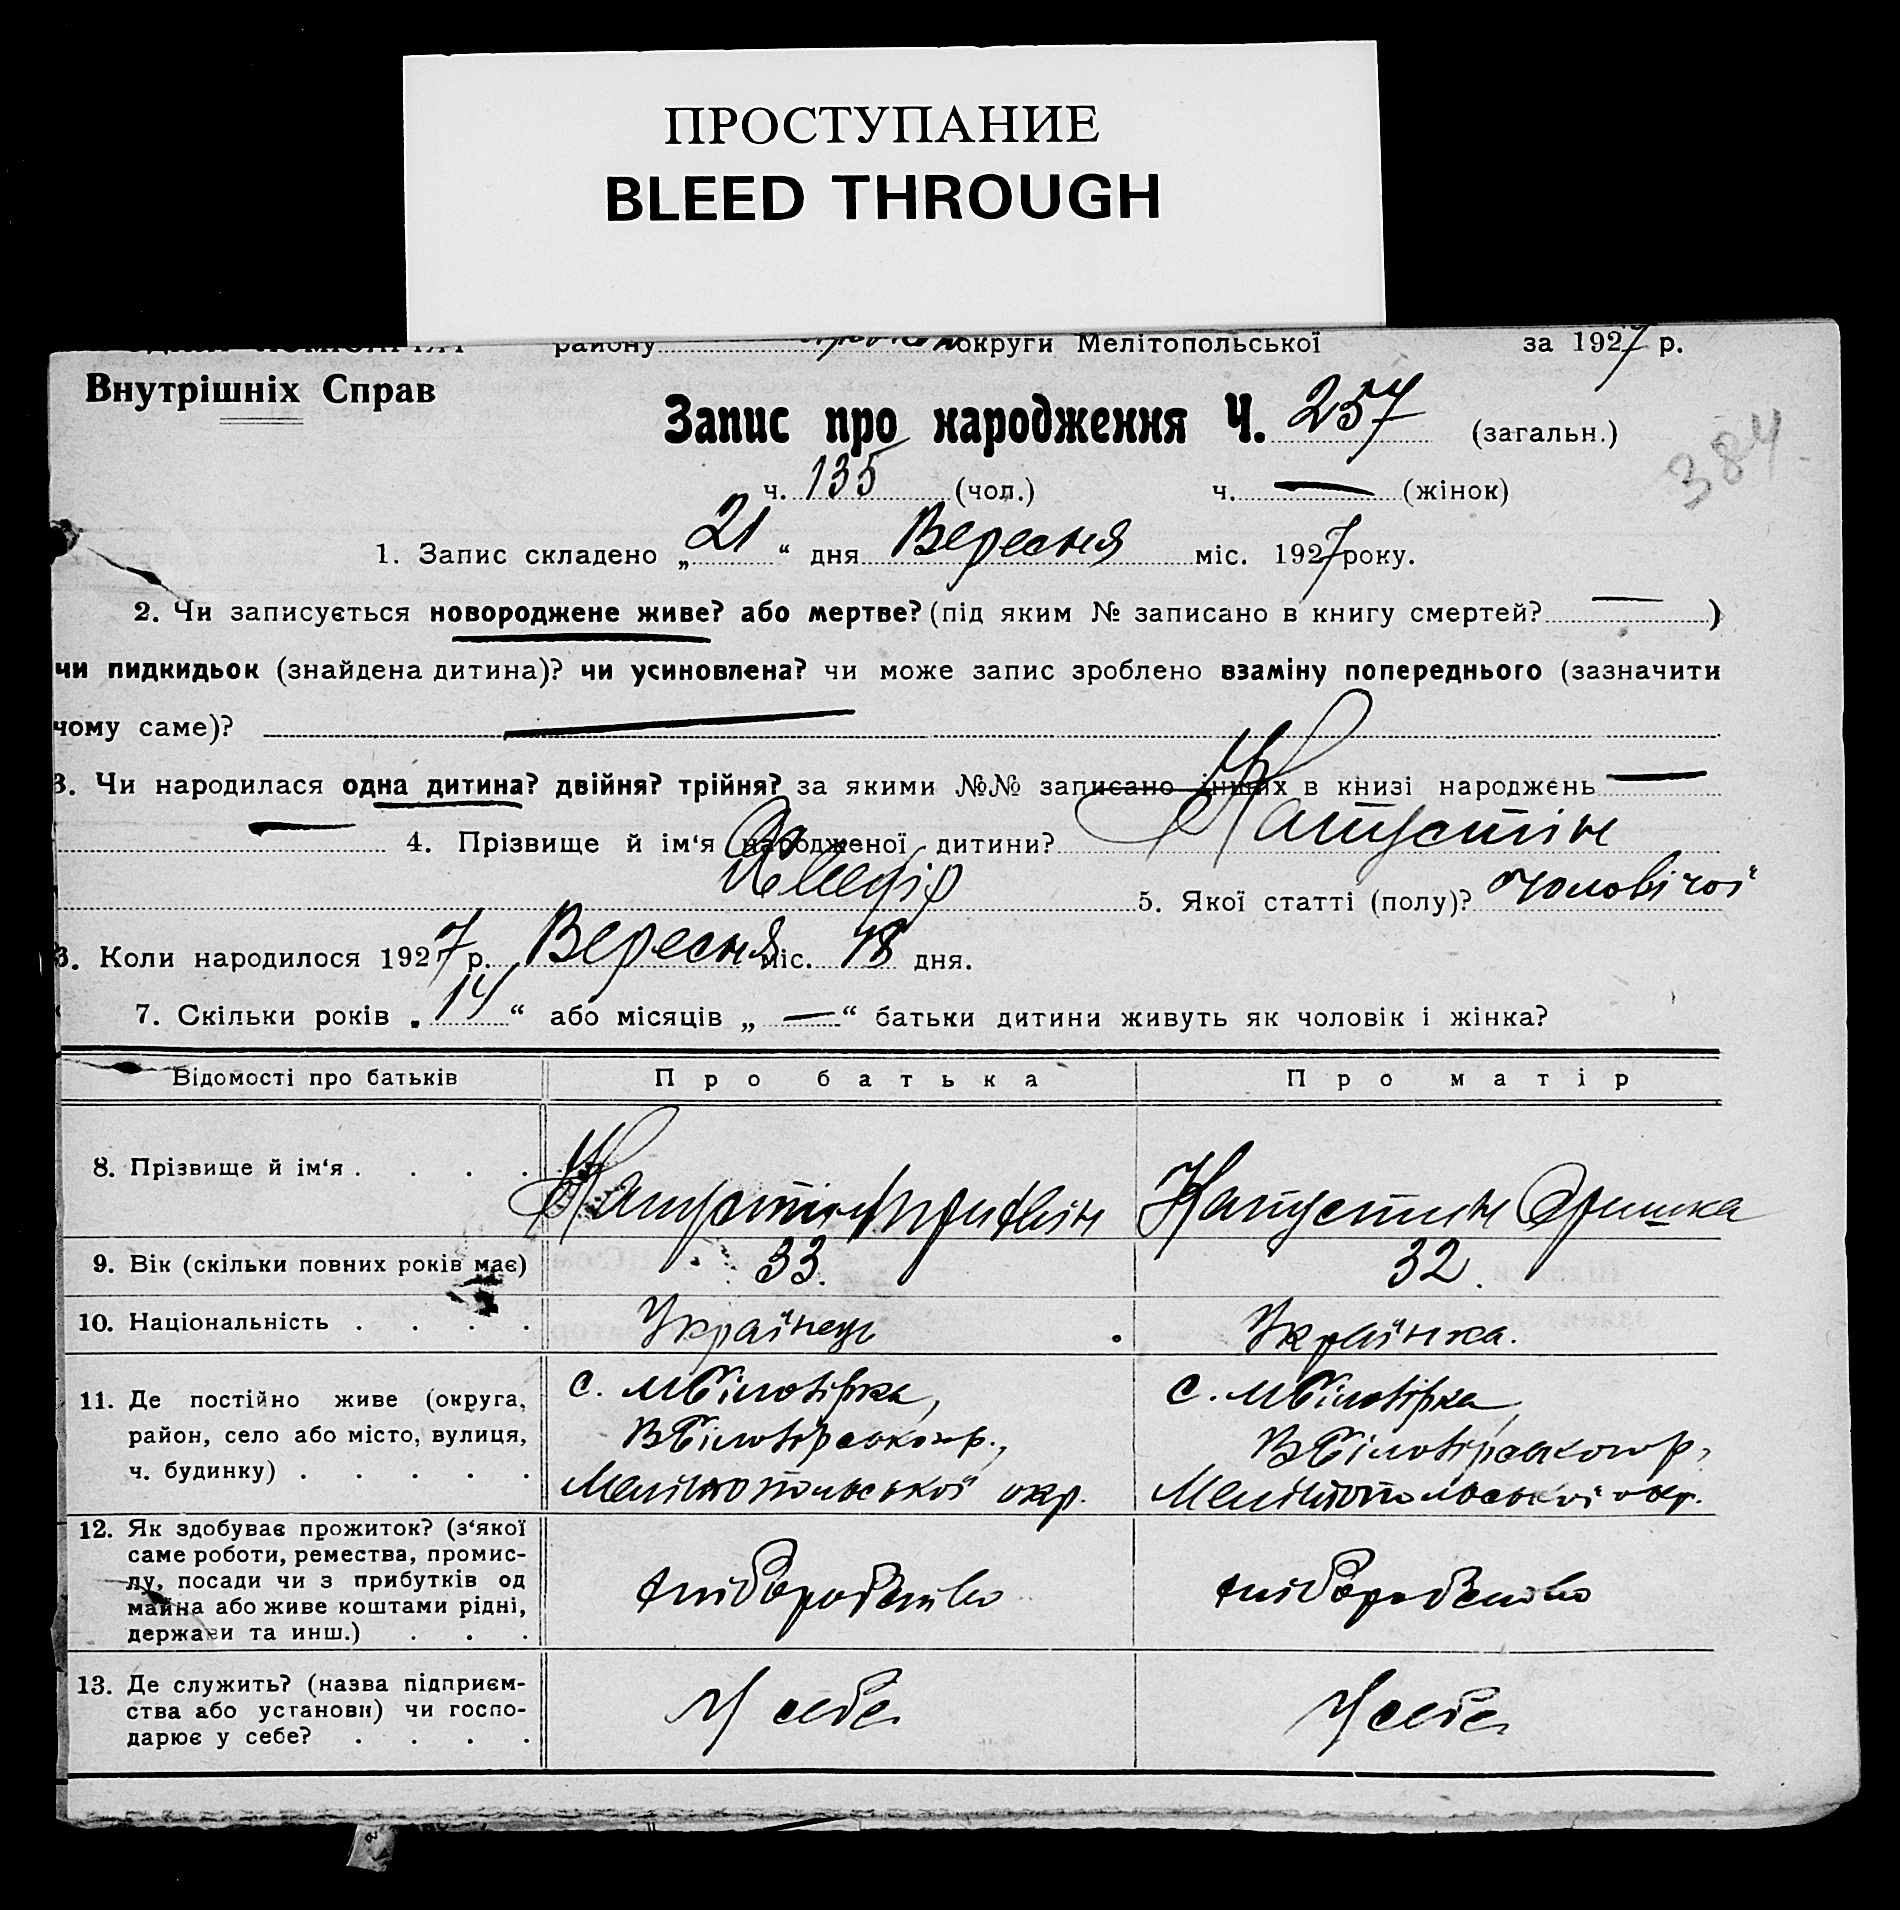 ПРОСТУПАНИЕ
BLEED THROUGH
району округи Мелітопольської за 1927 р.
Внутрішніх Справ
Запис про народження Ч. 257 (загальн.)
384
ч. 135 (чол.) ч. — (жінок)
1. Запис складено „21“ дня Вересня міс. 1927 року.
2. Чи записується новороджене живе? або мертве? (під яким № записано в книгу смертей? — )
чи пидкидьок (знайдена дитина)? чи усиновлена? чи може запис зроблено взаміну попереднього (зазначити
чому саме)? —
3. Чи народилася одна дитина? двійня? трійня? за якими №№ записано інших в книзі народжень —
— 4. Прізвище й ім‘я народженої дитини? Капустін
5. Якої статті (полу)? чоловічої
6. Коли народилося 1927 р. Вересня міс. 18 дня.
7. Скільки років „14“ або місяців „—“ батьки дитини живуть як чоловік і жінка?
Відомості про батьків Про батька Про матір
8. Прізвище й ім‘я . . . . Капустін Капустин Оришка
9. Вік (скільки повних років має) 33. 32.
10. Національність . . . . Українець Українка.
11. Де постійно живе (округа, район, село або місто, вулиця, ч. будинку) . . . . .
с. МБілозірка, ВБілозірського р., Мелітопольської окр.
с. МБілозірка, ВБілозірського р, Мелітопольської окр.
12. Як здобуває прожиток? (з‘якої
саме роботи, ремества, промис-
лу, посади чи з прибутків од
майна або живе коштами рідні,
держави та инш.) . . .
хліборобство хліборобство
13. Де служить? (назва підприєм-
ства або установи) чи госпо-
дарює у себе? . . . .
У себе У себе